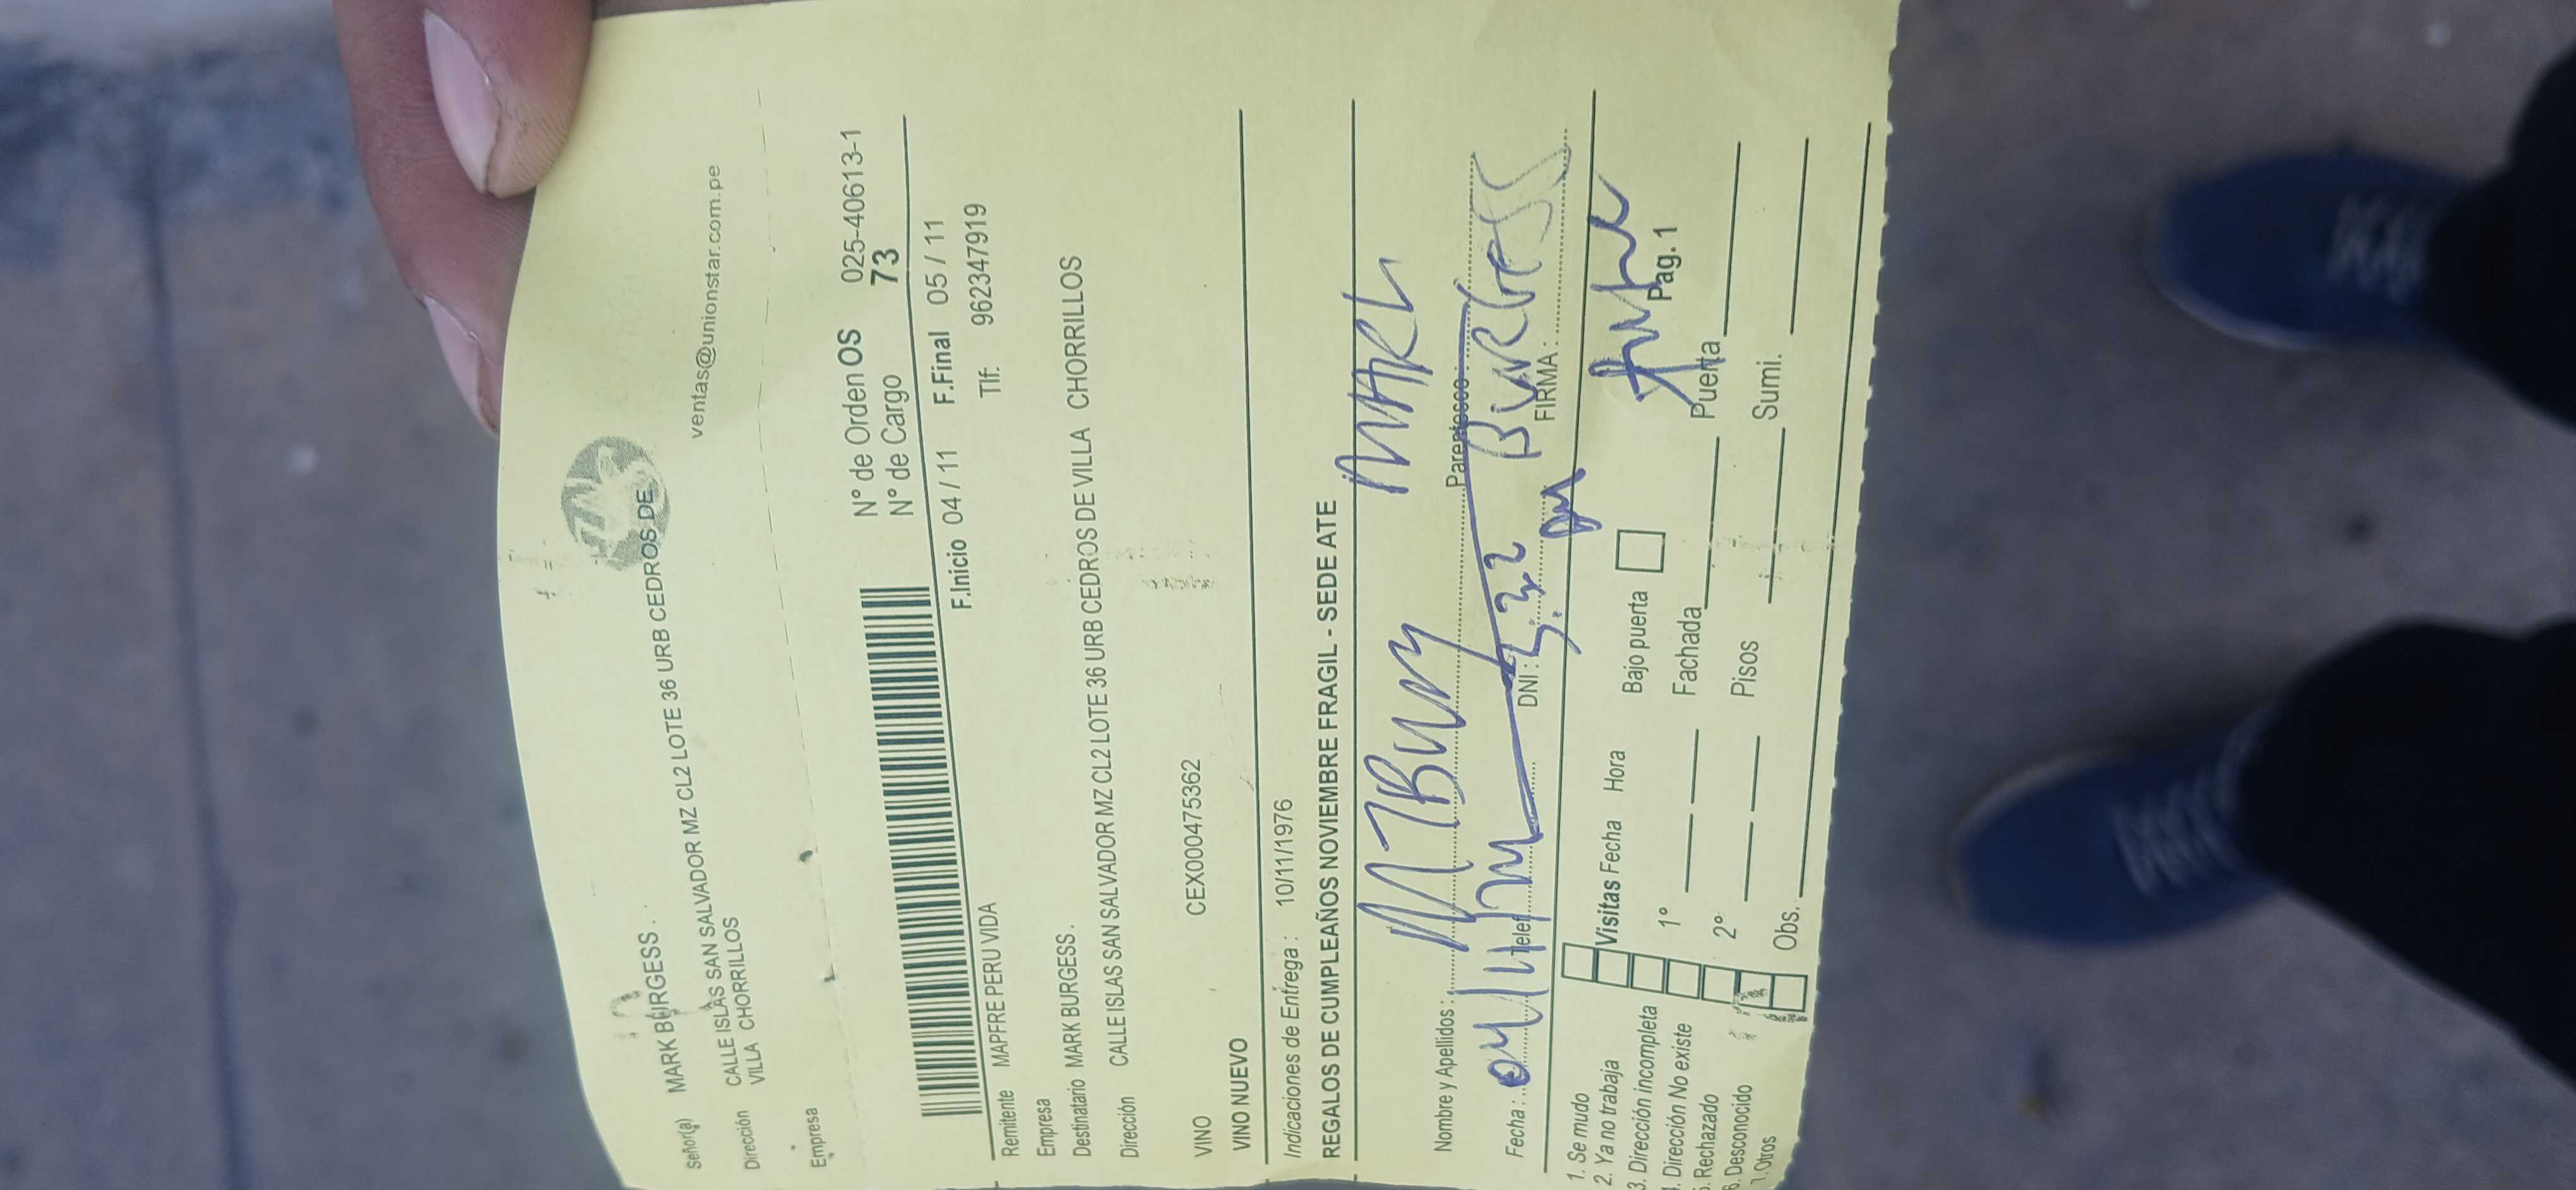 Señor(a) MARK BURGESS .
Dirección CALLE ISLAS SAN SALVADOR MZ CL2 LOTE 36 URB CEDROS DE
VILLA CHORRILLOS
ventas@unionstar.com.pe
Empresa
N° de Orden OS 025-40613-1
N° de Cargo 73
F.Inicio 04 / 11 F.Final 05 / 11
Remitente MAPFRE PERU VIDA Tlf. 962347919
Empresa
Destinatario MARK BURGESS .
Dirección CALLE ISLAS SAN SALVADOR MZ CL2 LOTE 36 URB CEDROS DE VILLA CHORRILLOS
VINO CEX000475362
VINO NUEVO
Indicaciones de Entrega : 10/11/1976
REGALOS DE CUMPLEAÑOS NOVIEMBRE FRAGIL - SEDE ATE
MARK
Nombre y Apellidos : Parentesco :
BURGESS
Fecha : Telef. DNI : FIRMA :
1. Se mudo
2. Ya no trabaja Visitas Fecha Hora Bajo puerta Pag. 1
3. Dirección incompleta 1° Fachada Puerta
4. Dirección No existe
5. Rechazado 2° Pisos Sumi.
6. Desconocido
7. Otros Obs.